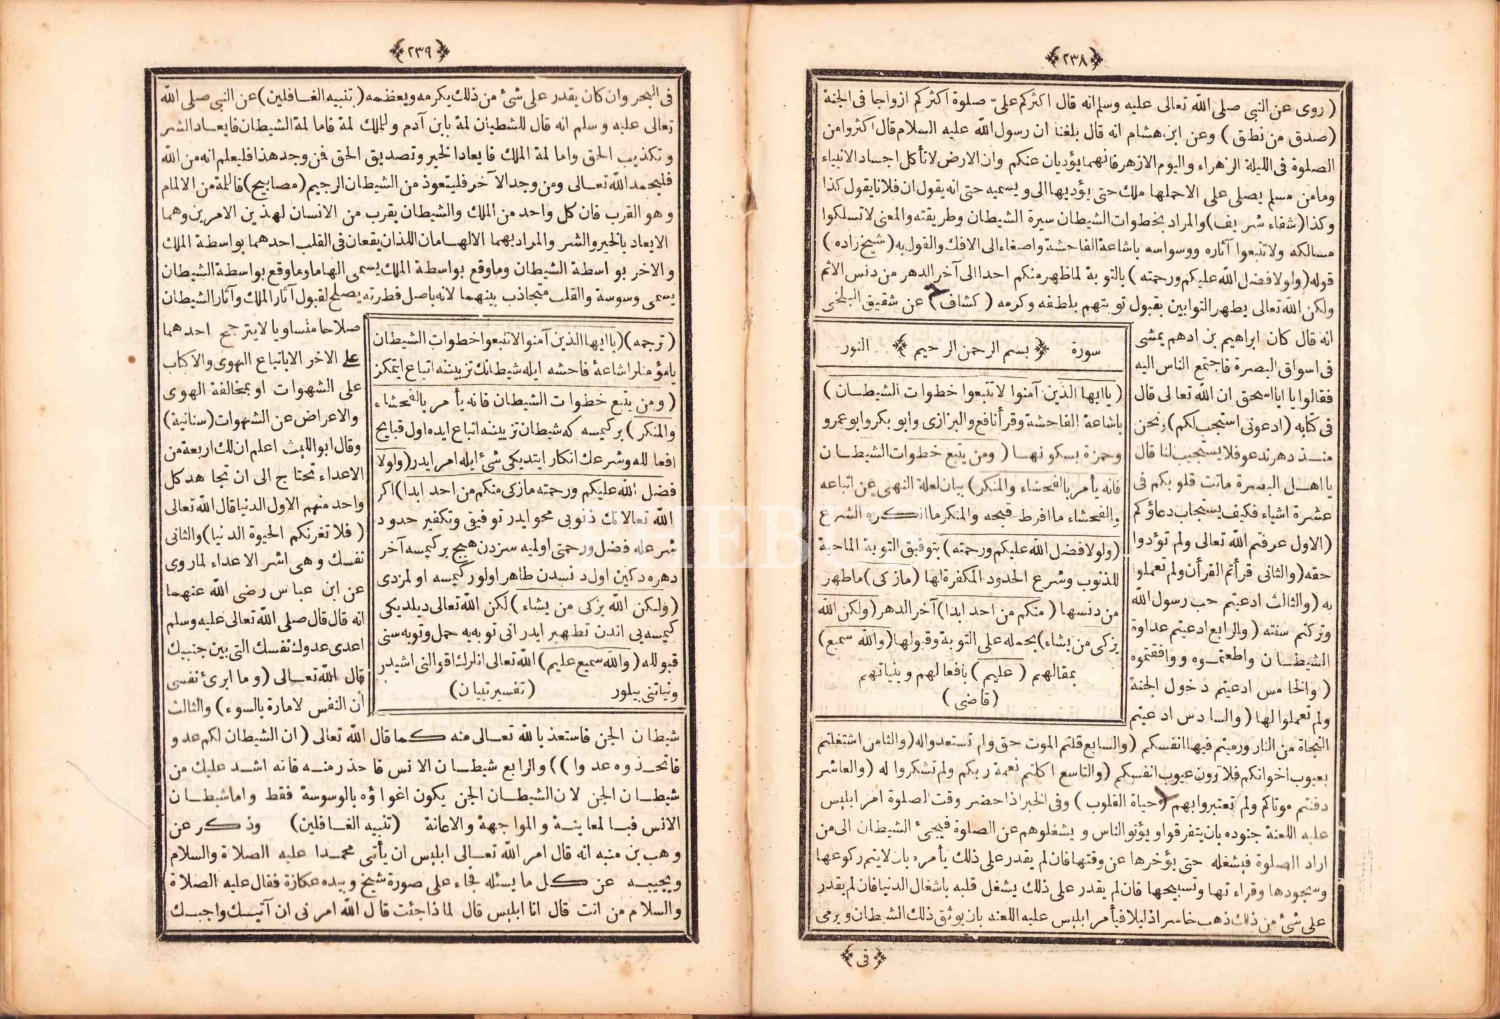 ﴿٢٣٨﴾
( روى عن النبي صلى الله تعالى عليه وسلم انه قال اكثركم على صلوة اكثركم ازواجا فى الجنة
(صدق من نطق ) وعن ابن هشام انه قال بلغنا ان رسول الله عليه السلام قال اكثروا من
الصلوة فى الليلة الزهراء واليوم الازهر فانهما يؤديان عنكم وان الارض لا تأكل اجساد الانبياء
وما من مسلم يصلى على الا حملها ملك حتى يؤديها الى ويسميه حتى انه يقول ان فلانا يقول كذا
وكذا (شفاء شريف) والمراد بخطوات الشيطان سيرة الشيطان وطريقته والمعنى لا تسلكوا
مسالكه ولا تتبعوا آثاره ووسواسه باشاعة الفاحشة واصغاء الى الافك والقول به (شيخ زاده)
قوله (ولولا فضل الله عليكم ورحمته ) بالتوبة لما ظهر منكم احدا الى آخر الدهر من دنس الاثم
ولكن الله تعالى يطهر التوابين بقبول توبتهم بلطفه وكرمه ( كشاف ) عن شقيق البلخى
انه قال كان ابراهيم بن ادهم يمشى
فى اسواق البصرة فاجتمع الناس اليه
فقالوا يا ابا اسحق ان الله تعالى قال
فى كتابه (ادعونى استجب لكم) ونحن
منذ دهر ندعو فلا يستجيب لنا قال
يا اهل البصرة ماتت قلوبكم فى
عشرة اشياء فكيف يستجاب دعاؤكم
(الاول عرفتم الله تعالى ولم تؤدوا
حقه (والثانى قرأتم القرأن ولم تعملوا
به (والثالث ادعيتم حب رسول الله
وتركتم سنته (والرابع ادعيتم عداوة
الشيطان واطعتموه ووافقتموه
( والخامس ادعيتم دخول الجنة
ولم تعملوا لها (والسادس ادعيتم
سورة ﴿ بسم الرحمن الرحيم ﴾ النور
(يا ايها الذين آمنوا لا تتبعوا خطوات الشيطان )
باشاعة الفاحشة وقرأ نافع والبزازى وابو بكر وابو عمرو
وحمزة بسكونها ( ومن يتبع خطوات الشيطان
فانه يأمر بالفحشاء والمنكر) بيان لعلة النهى عن اتباعه
والفحشاء ما افرط قبحه والمنكر ما انكره الشرع
(ولولا فضل الله عليكم ورحمته ) بتوفيق التوبة الماحية
للذنوب وشرع الحدود المكفرة لها (ما زكى) ما طهر
من دنسها ( منكم من احد ابدا) آخر الدهر (ولكن الله
يزكى من يشاء) بحمله على التوبة وقبولها (والله سميع)
بمقالهم ( عليم ) بافعالهم وبنياتهم
(قاضى )
النجاة من النار ورميتم فيها انفسكم (والسابع قلتم الموت حق ولم تستعدوا له (والثامن اشتغلتم
بعيوب اخوانكم فلا ترون عيوب انفسكم (والتاسع اكلتم نعمة ربكم ولم تشكروا له (والعاشر
دفنتم موتاكم ولم تعتبروا بهم (حياة القلوب ) وفى الخبر اذا حضر وقت الصلوة امر ابليس
عليه اللعنة جنوده بان يتفرقوا ويؤتوا الناس ويشغلوهم عن الصلوة فيجئ الشيطان الى من
اراد الصلوة فيشغله حتى يؤخرها عن وقتها فان لم يقدر على ذلك يأمره بان لا يتم ركوعها
وسجودها وقراءتها وتسبيحها فان لم يقدر على ذلك يشغل قلبه باشغال الدنيا فان لم يقدر
على شئ من ذلك ذهب خاسرا ذليلا فيأمر ابليس عليه اللعنه بان يوثق ذلك الشيطان ويرمى
﴿ فى ﴾
﴿٢٣٩﴾
فى البحر وان كان يقدر على شئ من ذلك يكرمه ويعظمه ( تنبيه الغافلين ) عن النبى صلى الله
تعالى عليه وسلم انه قال للشطيان لمة بابن آدم وللملك لمة فاما لمة الشيطان فايعاد الشر
وتكذيب الحق واما لمة الملك فايعاد الخير وتصديق الحق فمن وجد هذا فليعلم انه من الله
فليحمد الله تعالى ومن وجد الآخر فليتعوذ من الشيطان الرجيم (مصابيح) فاللمة من الالمام
وهو القرب فان كل واحد من الملك والشيطان يقرب من الانسان لهذين الامرين وهما
الايعاد بالخير والشر والمراد بهما الالهامان اللذان يقعان فى القلب احدهما بواسطة الملك
والاخر بواسطة الشيطان وما وقع بواسطة الملك يسمى الهاما وما وقع بواسطة الشيطان
يسمى وسوسة والقلب متجاذب بينهما لانه باصل فطرته يصلح لقبول آثار الملك وآثار الشيطان
صلاحا متساويا لا يترجح احدهما
على الاخر الا باتباع الهوى والاكباب
على الشهوات او بمخالفة الهوى
والاعراض عن الشهوات (سنانية)
وقال ابو الليث اعلم ان لك اربعة من
الاعداء تحتاج الى ان تجاهد كل
واحد منهم الاول الدنيا قال الله تعالى
( فلا تغرنكم الحيوة الدنيا) والثانى
نفسك وهى اشر الاعداء لما روى
عن ابن عباس رضى الله عنهما
انه قال قال صلى الله تعالى عليه وسلم
اعدى عدوك نفسك التى بين جنبيك
قال الله تعالى ( وما ابرئ نفسى
ان النفس لامارة بالسوء ) والثالث
( ترجمه ) (يا ايها الذين آمنوا لا تتبعوا خطوات الشيطان
يا مؤمنلر اشاعهٔ فاحشه ايله شيطانك تزييننه اتباع ايتمكز
( ومن يتبع خطوات الشيطان فانه يأمر بالفحشاء
والمنكر ) بر كيمسه كه شيطان تزييننه اتباع ايده اول قبايح
افعالله وشرعك انكار ايتديكى شئ ايله امر ايدر (ولولا
فضل الله عليكم ورحمته ما زكى منكم من احد ابدا) اكر
الله تعالانك ذنوبى محو ايدر توفيق وتكفير حدود
شرعله فضل ورحمتى اولميه سزدن هيچ بر كيمسه آخر
دهره دكين اول دنسدن طاهر اولور كيمسه اولمزدى
(ولكن الله يزكى من يشاء ) لكن الله تعالى ديلديكى
كيمسه يى اندن تطهير ايدر انى توبه يه حمل وتوبه سنى
قبوللە ( والله سميع عليم ) الله تعالى انلرك اقوالنى اشيدر
ونياتنى بيلور ( تفسير تبيان )
شيطان الجن فاستعذ بالله تعالى منه كما قال الله تعالى ( ان الشيطان لكم عدو
فاتخذوه عدوا )) والرابع شيطان الانس فاحذر منه فانه اشد عليك من
شيطان الجن لان الشيطان الجن يكون اغواؤه بالوسوسة فقط واما شيطان
الانس فبالمعاينة والمواجهة والاعانة (تنبيه الغافلين) وذكر عن
وهب بن منبه انه قال امر الله تعالى ابليس ان يأتى محمدا عليه الصلاة والسلام
ويجيبه عن كل ما يسئله فجاء على صورة شيخ وبيده عكازة فقال عليه الصلاة
والسلام من انت قال انا ابليس قال لماذا جئت قال الله امرنى ان آتيك واجيبك